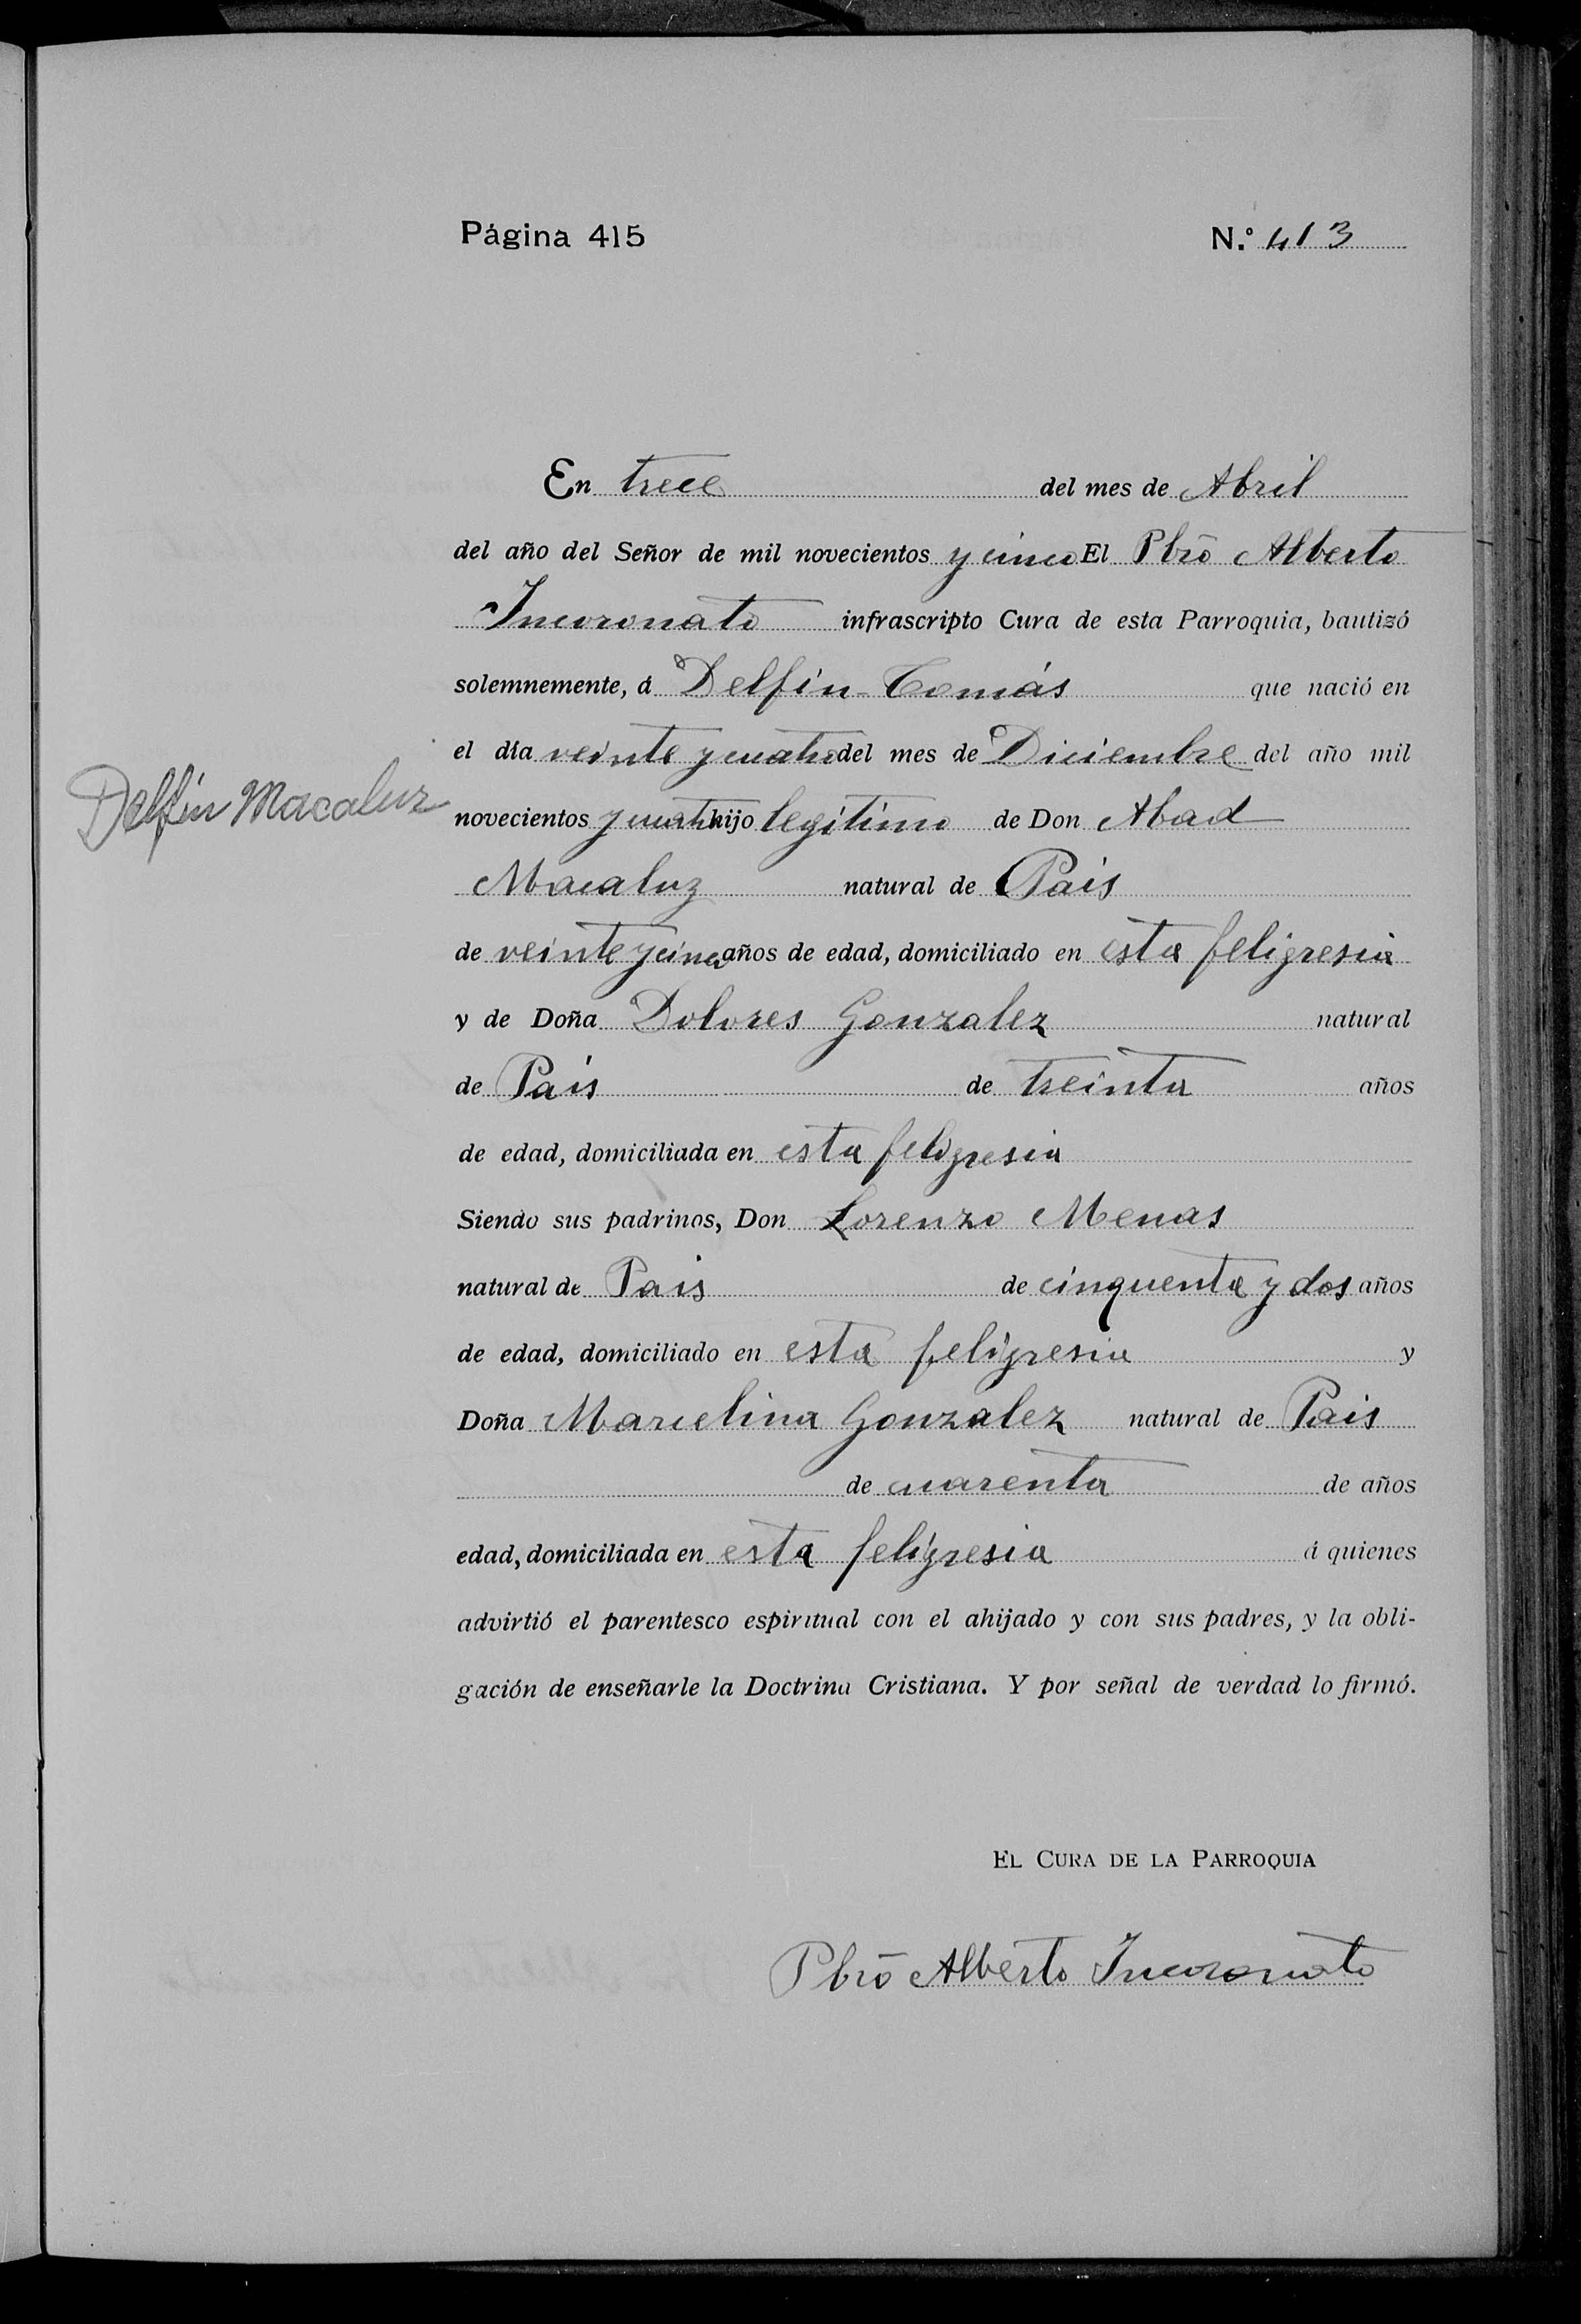 Página 415
N.º 413
En trece del mes de Abril
del año del Señor de mil novecientos y cinco El Pbrō Alberto
Incoronato infrascripto Cura de esta Parroquia, bautizó
solemnemente, á Delfin Tomás que nació en
el día veinte y cuatro del mes de Diciembre del año mil
Delfín Macaluz
novecientos y cuatro hijo legítimo de Don Abad
Macaluz natural de Pais
de veinte y cinco años de edad, domiciliado en esta feligresia
y de Doña Dolores Gonzalez natural
de Pais de treinta años
de edad, domiciliada en esta feligresia
Siendo sus padrinos, Don Lorenzo Menas
natural de Pais de cinquenta y dos años
de edad, domiciliado en esta feligresia y
Doña Marcelina Gonzalez natural de Pais
de cuarenta de años
edad, domiciliada en esta feligresia á quienes
advirtió el parentesco espiritual con el ahijado y con sus padres, y la obli-
gación de enseñarle la Doctrina Cristiana. Y por señal de verdad lo firmó.
EL CURA DE LA PARROQUIA
Pbrō Alberto Incoronato